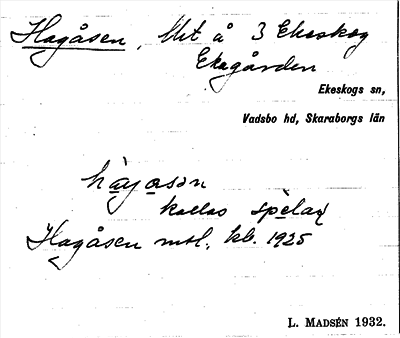 Hagåsen, Mt å 3 Ekeskog
Ekegården
Ekeskogs sn,
Vadsbo hd, Skaraborgs län
kallas
Hagåsen mtl. kb. 1925
L. MADSÉN 1932.